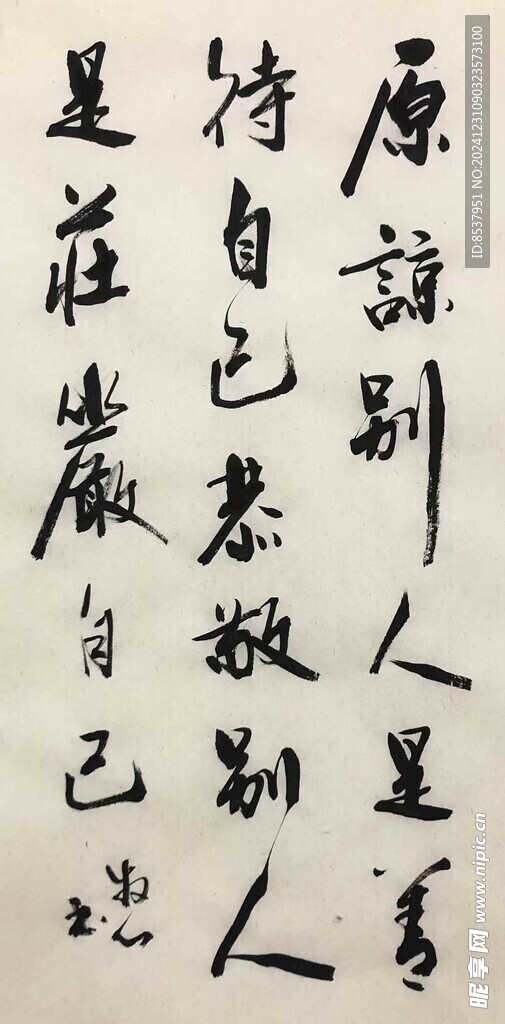 原諒别人是善
待自己恭敬别人
是莊嚴自己
牧心书
ID:8537951 NO:20241231090323573100
昵享网 www.nipic.cn